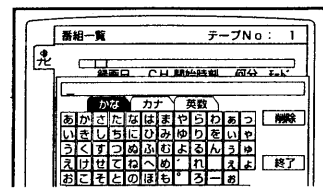 番組一覧 テープNo: 1
録画日 CH 開始時刻 何分 モード
かな カナ 英数
あかさたなはまやらわぁっ 削除
いきしちにひみゆりをぃゃ
うくすつぬふむよるんぅゅ
えけせてねへめ゛れ ぇょ 終了
おこそとのほも゜ろーぉ